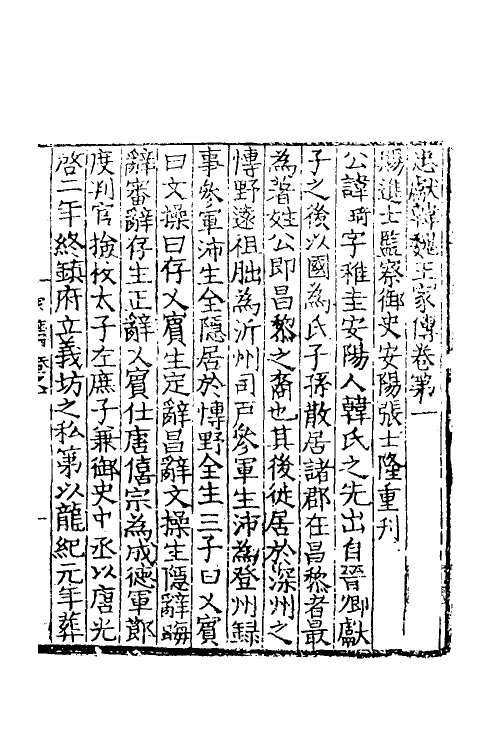 忠獻韓魏王家傳卷第一
賜進士監察御史安陽張士隆重刋
公諱琦字稚圭安陽人韓氏之先出自晉卿獻
子之後以國為氏子孫散居諸郡在昌黎者最
為著姓公即昌黎之裔也其後徙居於深州之
博野遠祖朏為沂州司戸參軍生沛為登州録
事參軍沛生全隱居於博野全生三子曰乂賓
曰文操曰存乂賓生定辭昌辭文操生隱辭晦
辭審辭存生正辭乂賓仕唐僖宗為成德軍節
度判官撿校太子左庶子兼御史中丞以唐光
啓二年終鎮府立義坊之私第以龍紀元年葬